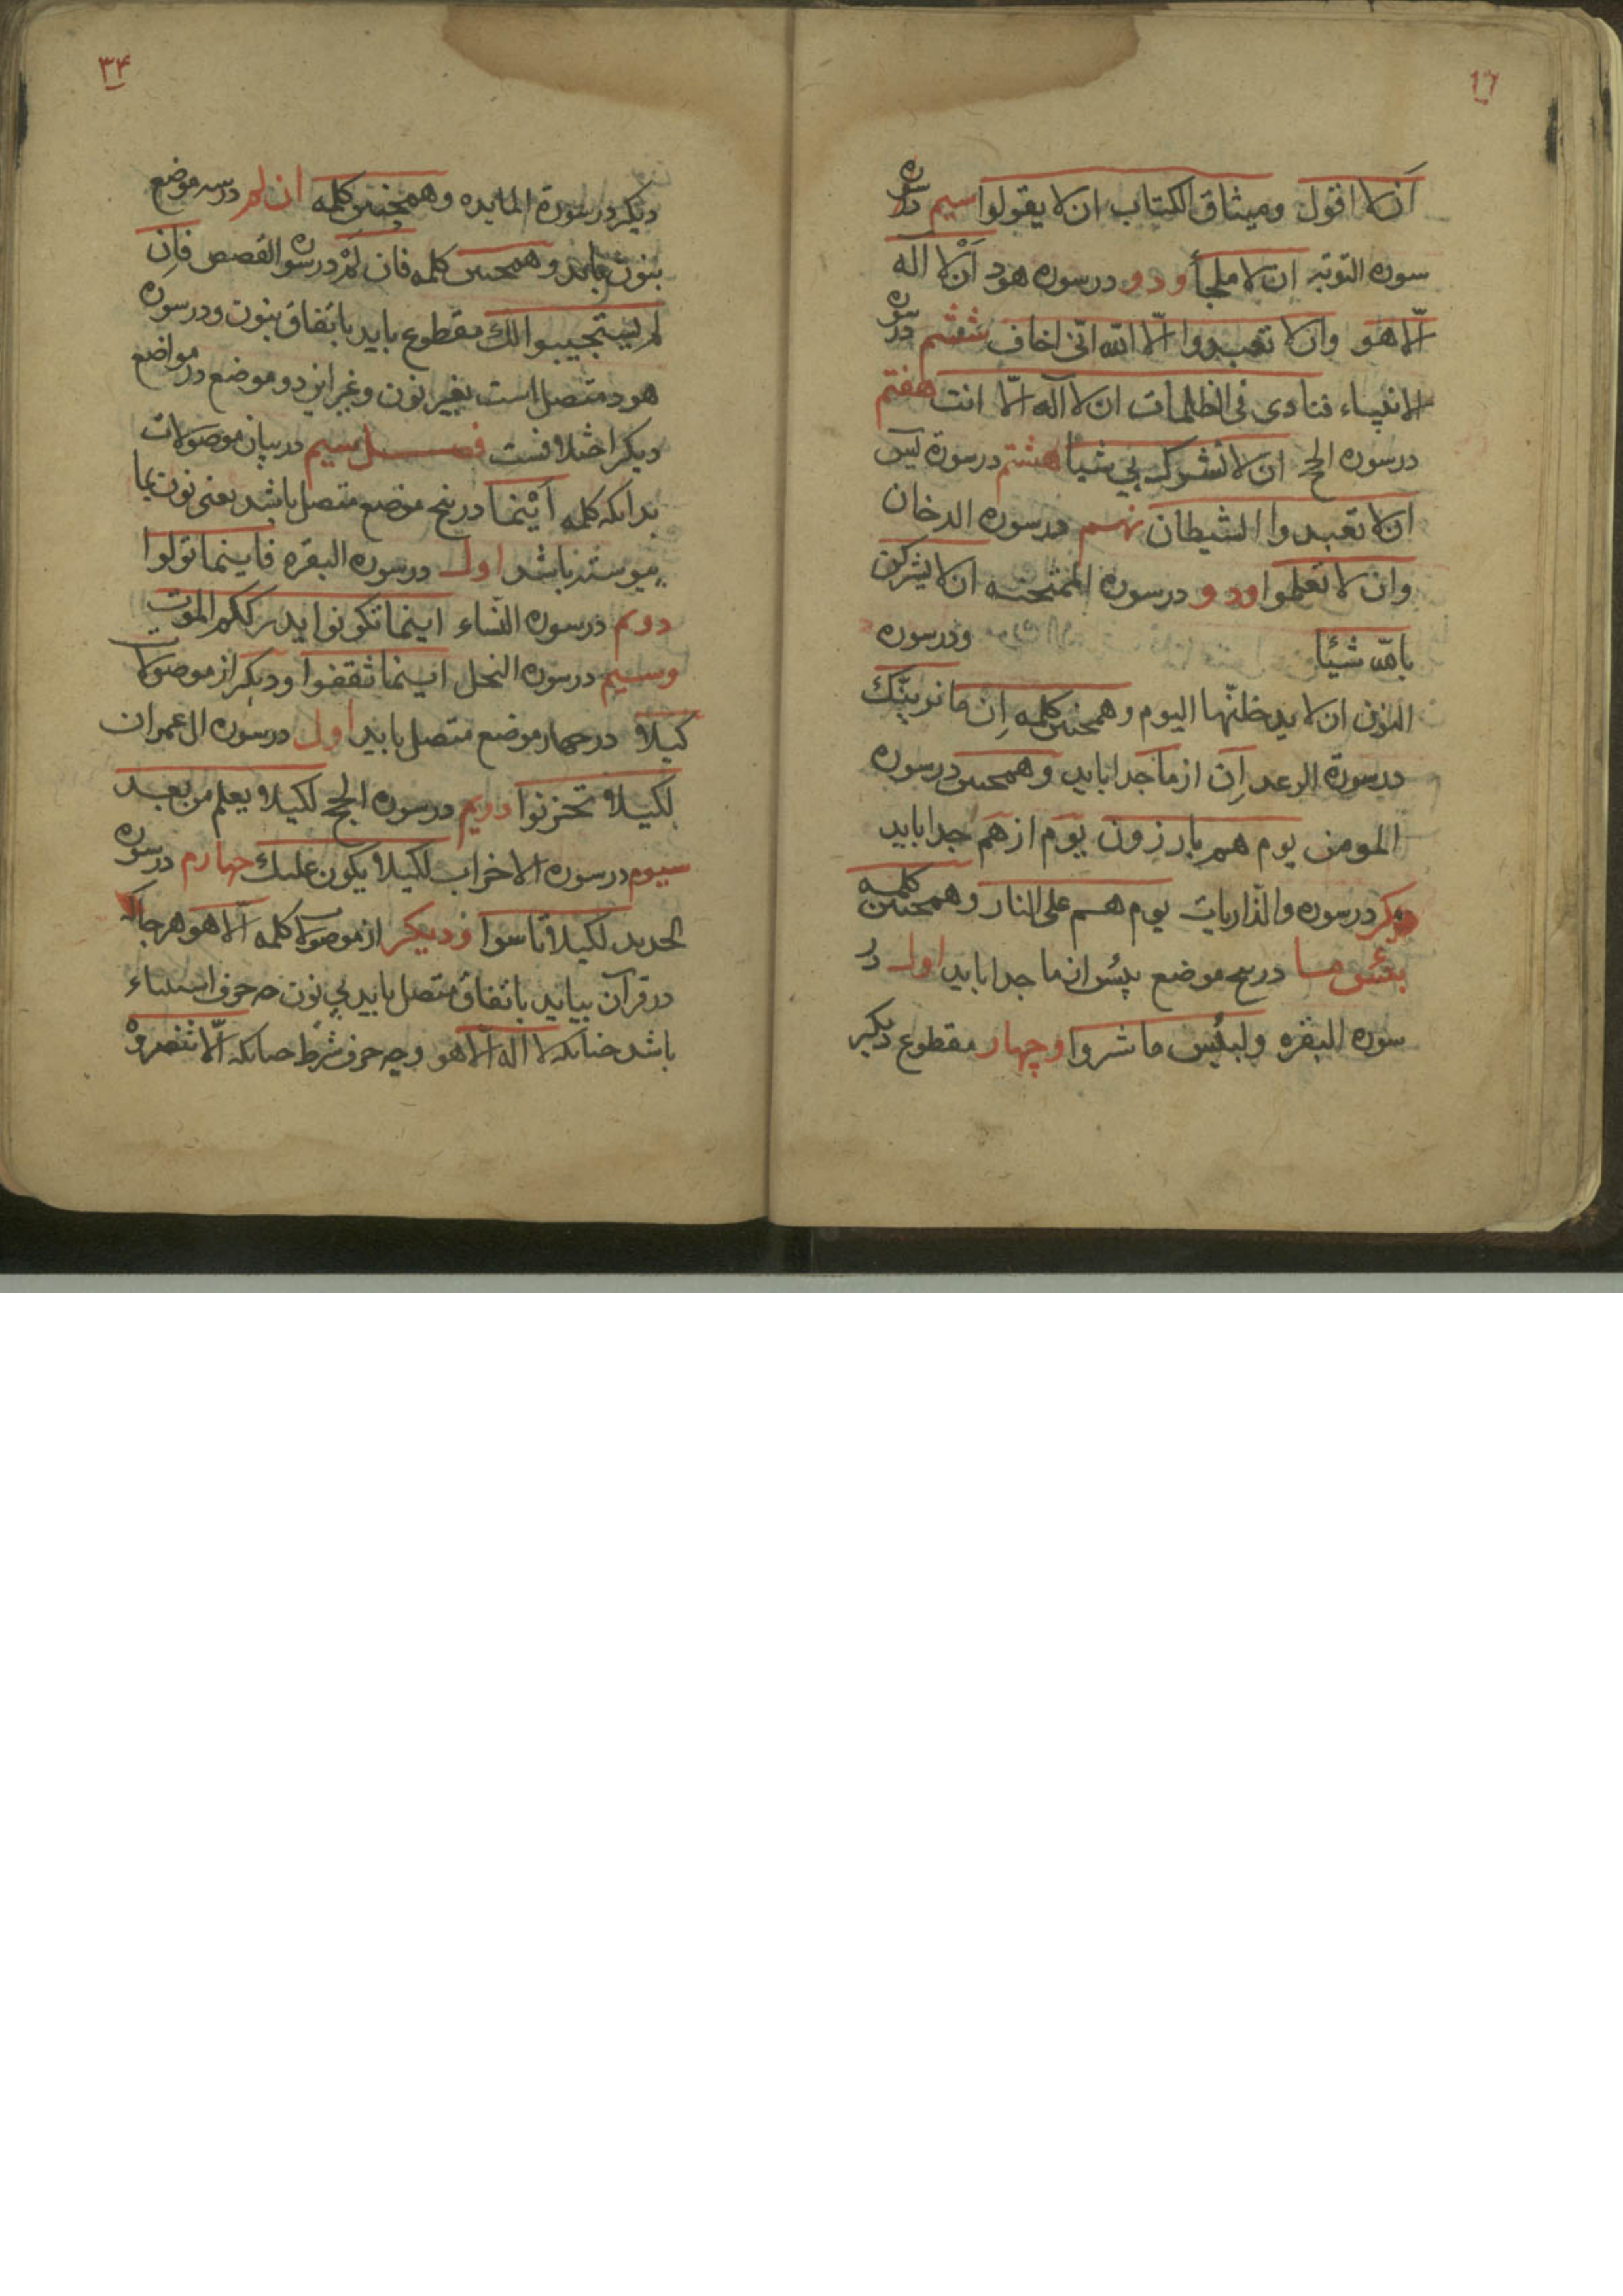 ١٦
ان لا اقول و میثاق الکتاب ان لا یقولوا سیم در سوره
سوره التوبه ان لا ملجأ و دو در سوره هود اَنْ لا اله
الّا هو وان لا تعبدوا الّا الله انّی اخاف ششم در سوره
الانبیاء فنادی فی الظلمات ان لا اله الّا انت هفتم
در سوره الحج ان لا تشرک بی شیأ هشتم در سورة یس
ان لا تعبدوا الشیطان نهم در سوره الدخان
وان لا تعلوا و دو در سوره الممتحنه ان لا یشرکن
بالله شیئا ودر سوره
النون ان لا یدخلنّها الیوم و همچنین کلمه اِن ما نرینّک
در سورة الرعد اِن از ما جدا باید و همچنین در سوره
المومن یوم هم بارزون یوم از هم جدا باید
دیکر در سوره والذاریات یوم هم علی النار و همچنین کلمه
بئس ما در پنج موضع بئس از ما جدا باید اول در
سوره البقره ولبئس ما شروا و چهار مقطوع دیکر
٣۴
دیکر در سورة المایده و همچنین کلمه ان لم در سه موضع
بنون باید و همچنین کلمه فان لَمْ در سوره القصص فاِن
لم یستجیبوا لک مقطوع باید باتفاق بنون و در سوره
هود متصل است بغیر نون و غیر این دو موضع در مواضع
دیکر اختلافست فصل سیم در بیان موصولات
بدانکه کلمه اَیْنما در پنج موضع متصل باشد یعنی نون بما
پیوسته باشد اول در سوره البقره فاینما تولوا
دوم در سوره النساء اینما تکونوا یدرککم الموت
و سیم در سوره النحل اینما ثقفوا و دیکر از موصولات
کیلا در چهار موضع متصل باید اول در سوره ال عمران
لکیلا تحزنوا دویم در سوره الحج لکیلا یعلم من بعد
سیوم در سوره الاحزاب لکیلا یکون علیک چهارم در سوره
الحدید لکیلا تاسوا و دیکر از موصولات کلمه الّا هو هر جا که
در قرآن بیاید باتفاق متصل باید بی نون چه حرف استثناء
باشد چنانکه لا اله الّا هو و چه حرف شرط چنانکه الّا تنصروْه